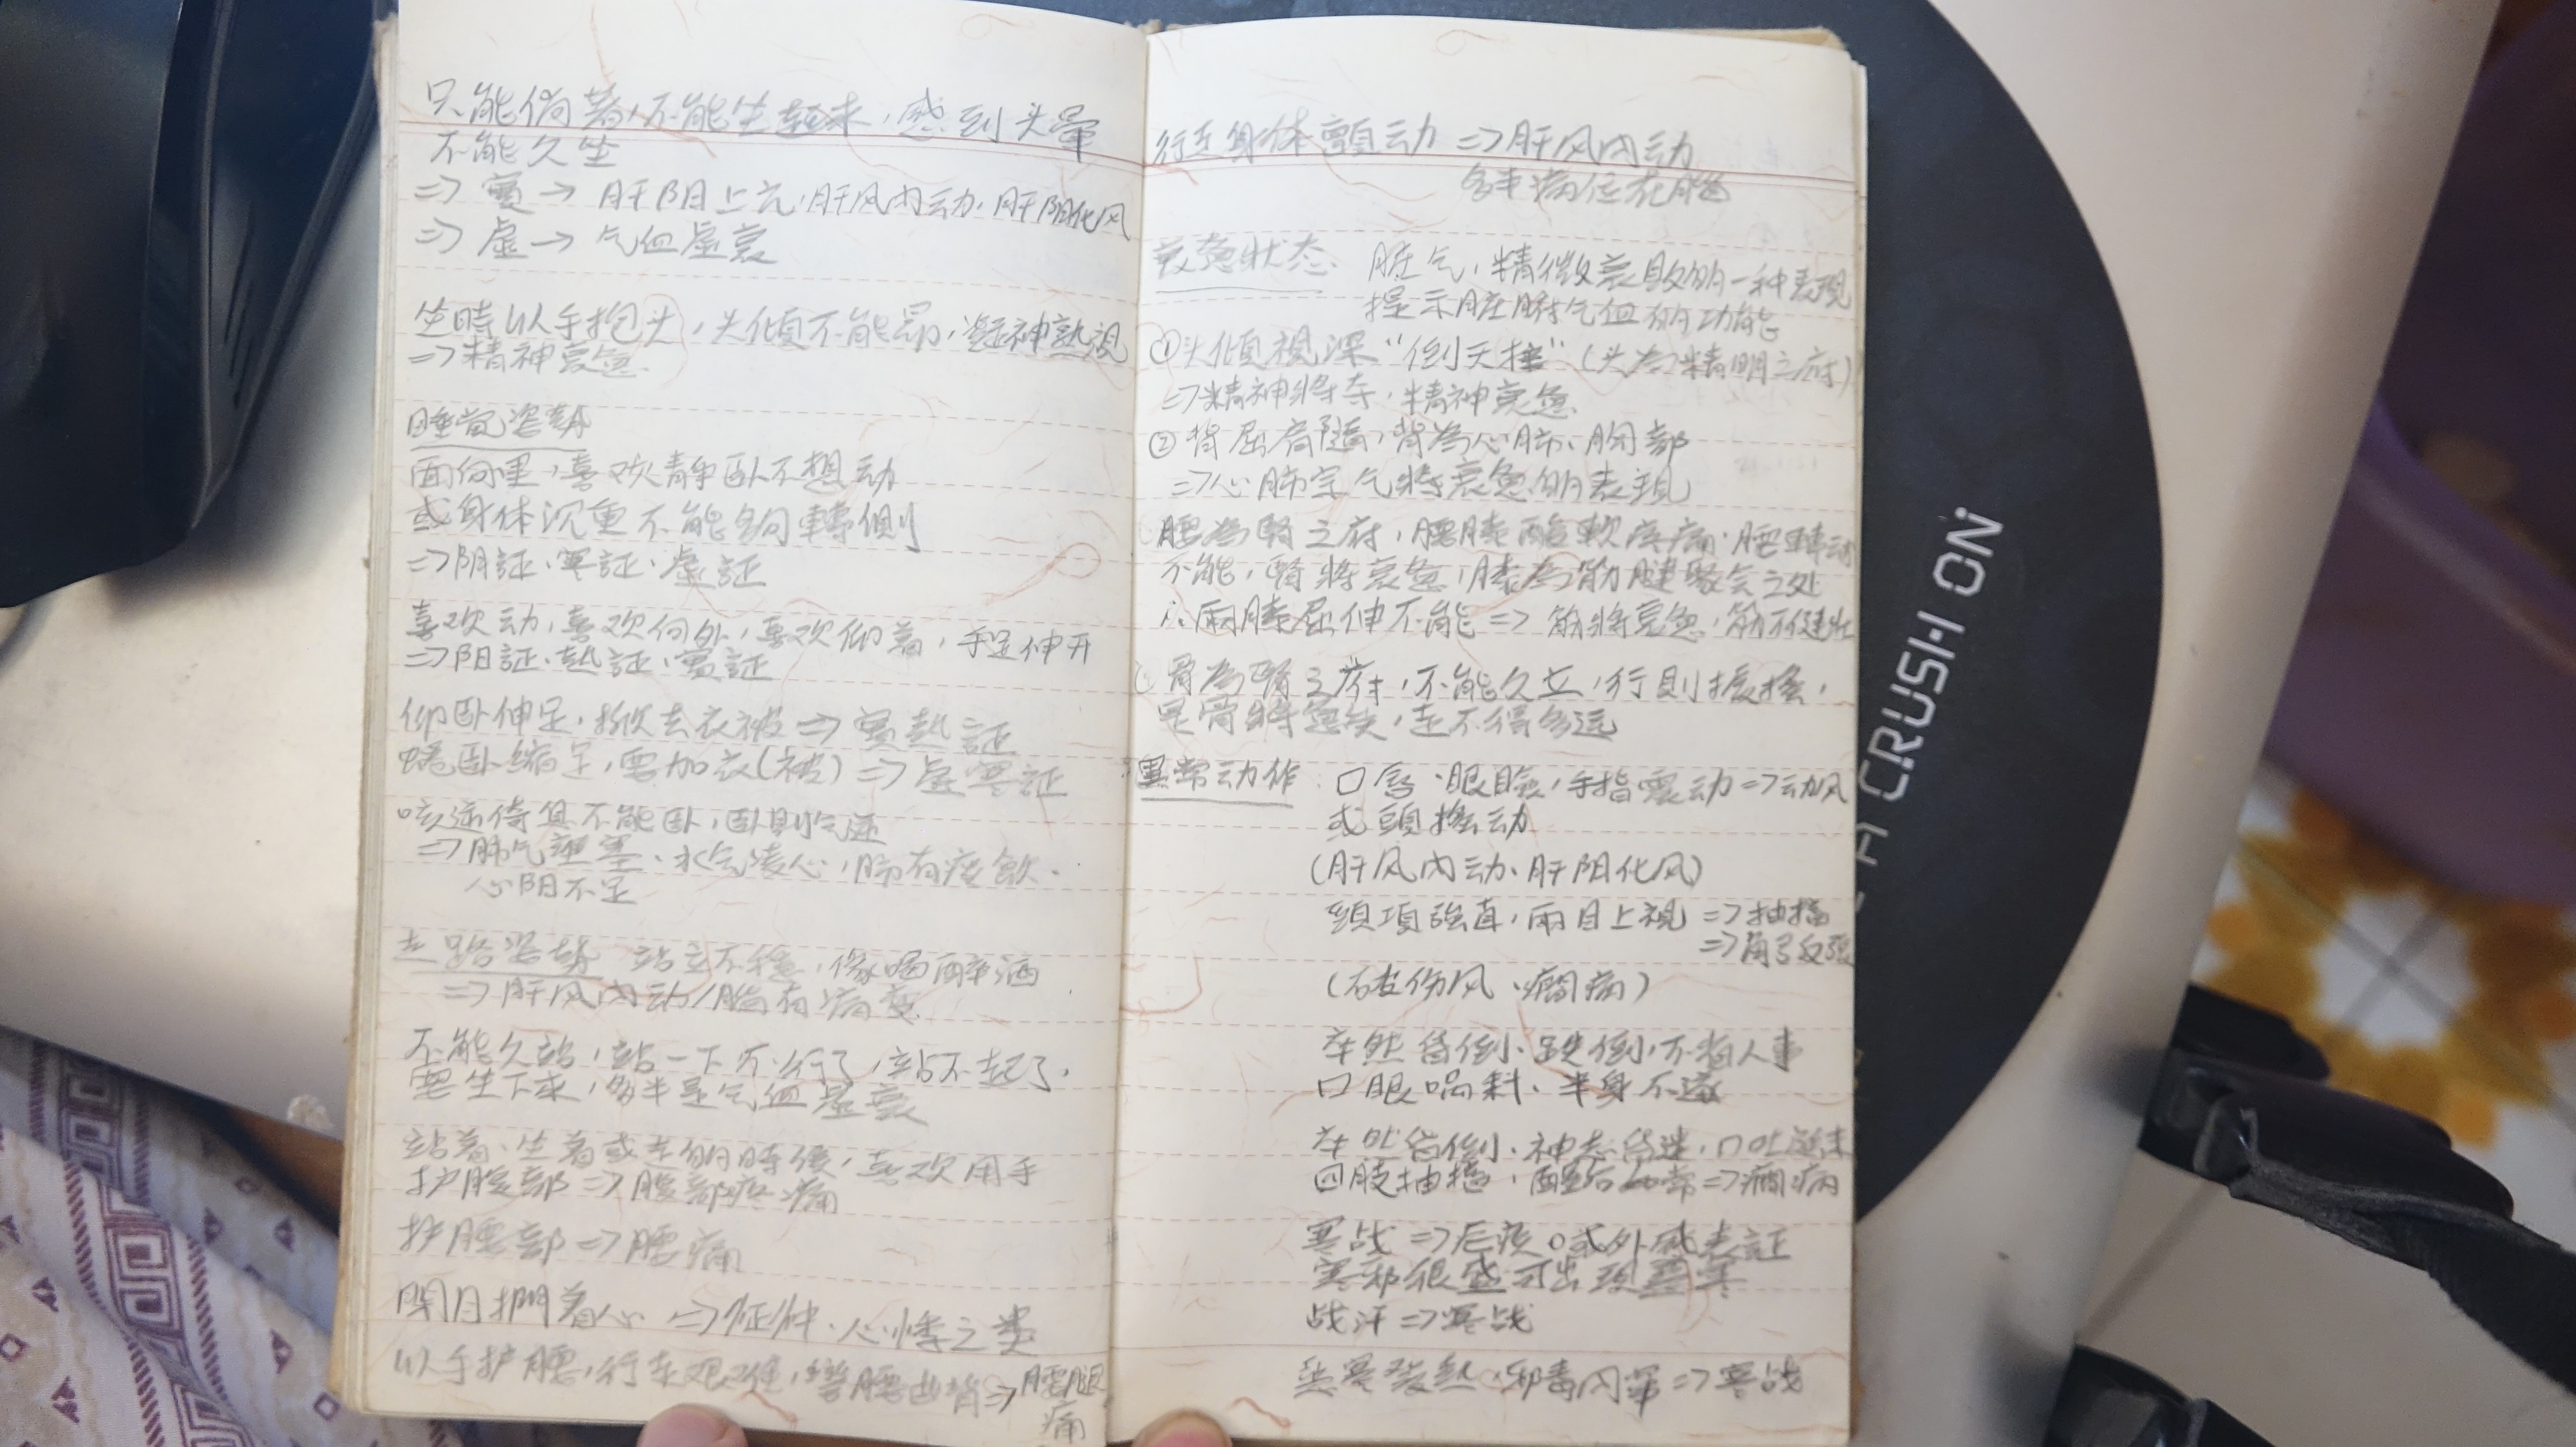 只能倚着,不能坐起来,感到头暈
不能久坐
=> 實 → 肝阳上亢.肝风内动.肝阳化风
=> 虚 → 气血虚衰
坐時以手抱头,头傾不能昂,凝神熟視
=> 精神衰惫.
睡觉姿勢
面向里,喜欢靜卧不想动
或身体沉重不能夠轉側
=> 阴証.寒証.虚証
喜欢动,喜欢向外,喜欢仰着,手足伸开
=> 阳証.熱証.實証
仰卧伸足,掀去衣被 => 實熱証
蜷卧縮足,要加衣(被) => 虚寒証
咳逆倚息不能卧,卧則气逆
=> 肺气壅塞、水气凌心,肺有痰飲.
心阳不足
走路姿勢 站立不穩,像喝醉酒
=> 肝风内动/脑有病变
不能久站,站一下不行了,站不起了,
要坐下来,多半是气血虚衰
站着、坐着或走的時候,喜欢用手
护腹部 => 腹部疼痛
护腰部 => 腰痛
閉目捫着心 => 怔忡.心悸之類
以手护腰,行走艰难,彎腰曲背 => 腰腿
痛
行走身体顫动 => 肝风内动
多半病位在脑
衰惫狀态. 脏气,精微衰敗的一种表現
提示脏腑气血的功能
① 头傾視深 “倒天柱” (头为精明之府)
=> 精神將夺,精神衰惫
② 背屈肩随,背為心肺、胸部
=> 心肺宗气將衰惫的表現
腰為腎之府,腰膝酸軟疼痛.腰轉动
不能,腎將衰惫,膝為筋腱聚会之处
∴ 兩膝屈伸不能 => 筋將衰惫,筋不健壯
骨為腎之府,不能久立,行則振搖,
是骨將惫矣,走不得多远
異常动作 口唇.眼瞼,手指震动 => 动风
或頭搖动
(肝风内动.肝阳化风)
頸項強直,兩目上視 => 抽搐
=> 角弓反張
(破伤风、癇病)
卒然昏倒.跌倒,不省人事
口眼喎斜、半身不遂
卒然昏倒.神志昏迷,口吐涎沫
四肢抽搐,醒后如常 => 癇病
寒战 => 疟疾 或外感表証
寒邪很盛可出現惡寒
战汗 => 寒战
惡寒發熱.邪毒内 => 寒战
A CRUSH ON